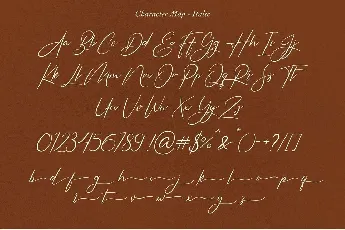 Character Map - Italic
Aa Bb Cc Dd Ee Ff Gg Hh Ii Jj
Kk Ll Mm Nn Oo Pp Qq Rr Ss Tt
Uu Vv Ww Xx Yy Zz
0123456789 !@#$%^&*()-+?/[]
b d f g h i j k l n o p q
r t u v w x y s z